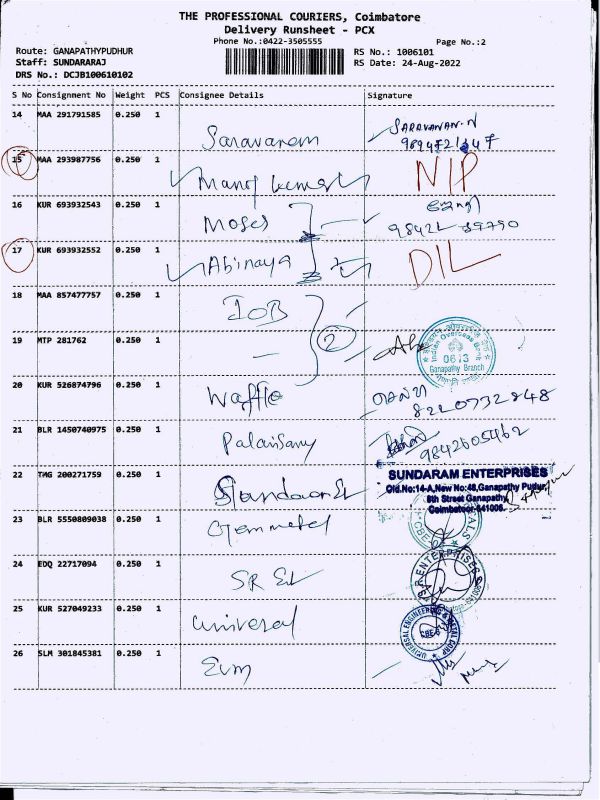 THE PROFESSIONAL COURIERS, Coimbatore
Delivery Runsheet - PCX
Phone No.:0422-3505555
Page No.:2
Route: GANAPATHYPUDHUR
RS No.: 1006101
Staff: SUNDARARAJ
RS Date: 24-Aug-2022
DRS No.: DCJB100610102
S No Consignment No Weight PCS Consignee Details Signature
14 MAA 291791585 0.250 1 Saravanam SARAVANAN.N
15 MAA 293987756 0.250 1 Manoj kumar NIP
16 KUR 693932543 0.250 1 Moses
17 KUR 693932552 0.250 1 Abinaya DIL
18 MAA 857477757 0.250 1 IOB
2
19 MTP 281762 0.250 1 Indian Overseas Bank
0613
Ganapathy Branch
20 KUR 526874796 0.250 1 Waffle 8220732848
21 BLR 1450740975 0.250 1 Palanisamy 9842605462
22 TMG 200271759 0.250 1
SUNDARAM ENTERPRISES
Old.No:14-A,New No:48,Ganapathy Pudur,
8th Street Ganapathy,
Coimbatoor-641006.
23 BLR 5550809038 0.250 1 Gemmetal
24 EDQ 22717094 0.250 1 SR Et S.R ENTERPRISES
25 KUR 527049233 0.250 1 Universal UNIVERSAL ENGINEERING & METAL CORP
CBE-6
26 SLM 301845381 0.250 1 Evm